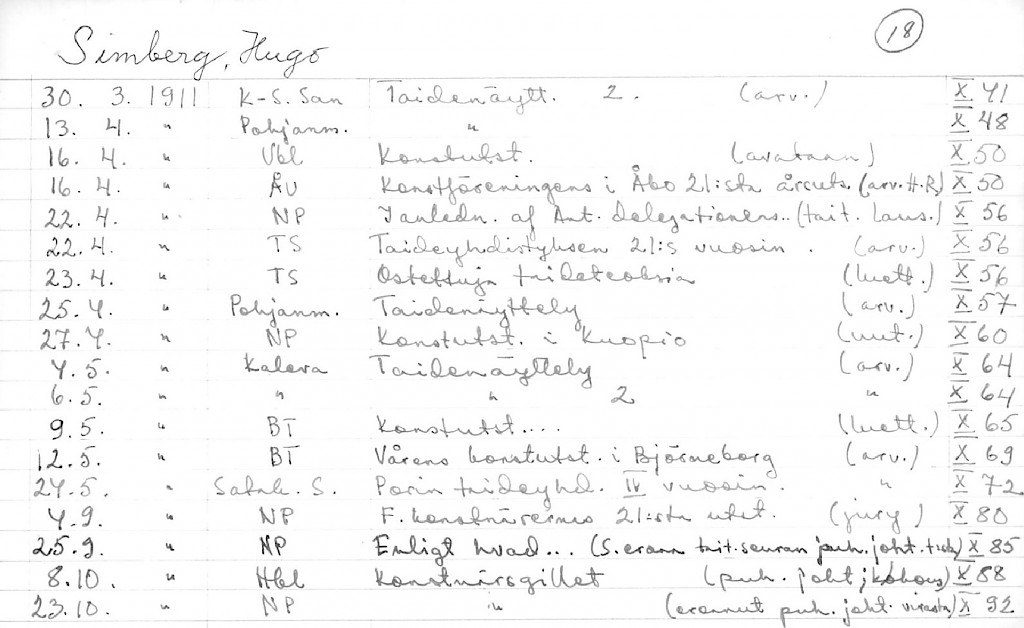 18
Simberg, Hugo
30. 3. 1911 K-S. San Taidenäytt. 2. (arv.) X 41
13. 4. " Pohjanm. " X 48
16. 4. " Vbl Konstutst. (avataan) X 50
16. 4. " ÅU Konstföreningens i Åbo 21:sta årsuts. (arv. H.R) X 50
22. 4. " NP I anledn. af Ant. delegationens.. (tait. laus.) X 56
22.4. " TS Taideyhdistyksen 21:s vuosin. (arv.) X 56
23.4. " TS Ostettuja taideteoksia (luett.) X 56
25.4. " Pohjanm. Taidenäyttely (arv.) X 57
27.4. " NP Konstutst. i Kuopio (uut.) X 60
4.5. " Kaleva Taidenäyttely (arv.) X 64
6.5. " " " 2 " X 64
9.5. " BT Konstutst.... (luett.) X 65
12.5. " BT Vårens konstutst. i Björneborg (arv.) X 69
24.5. " Satak. S. Porin taideyhd. IV vuosin. " X 72
4.9. " NP F. konstnärernas 21:sta utst. (jury) X 80
25.9. " NP Enligt hvad... (S. eroaa tait.seuran puh.joht. ) X 85
8.10. " Hbl Konstnärsgillet (puh. joht; ) X 88
23.10. " NP " (eronnut puh. joht. virasta) X 92